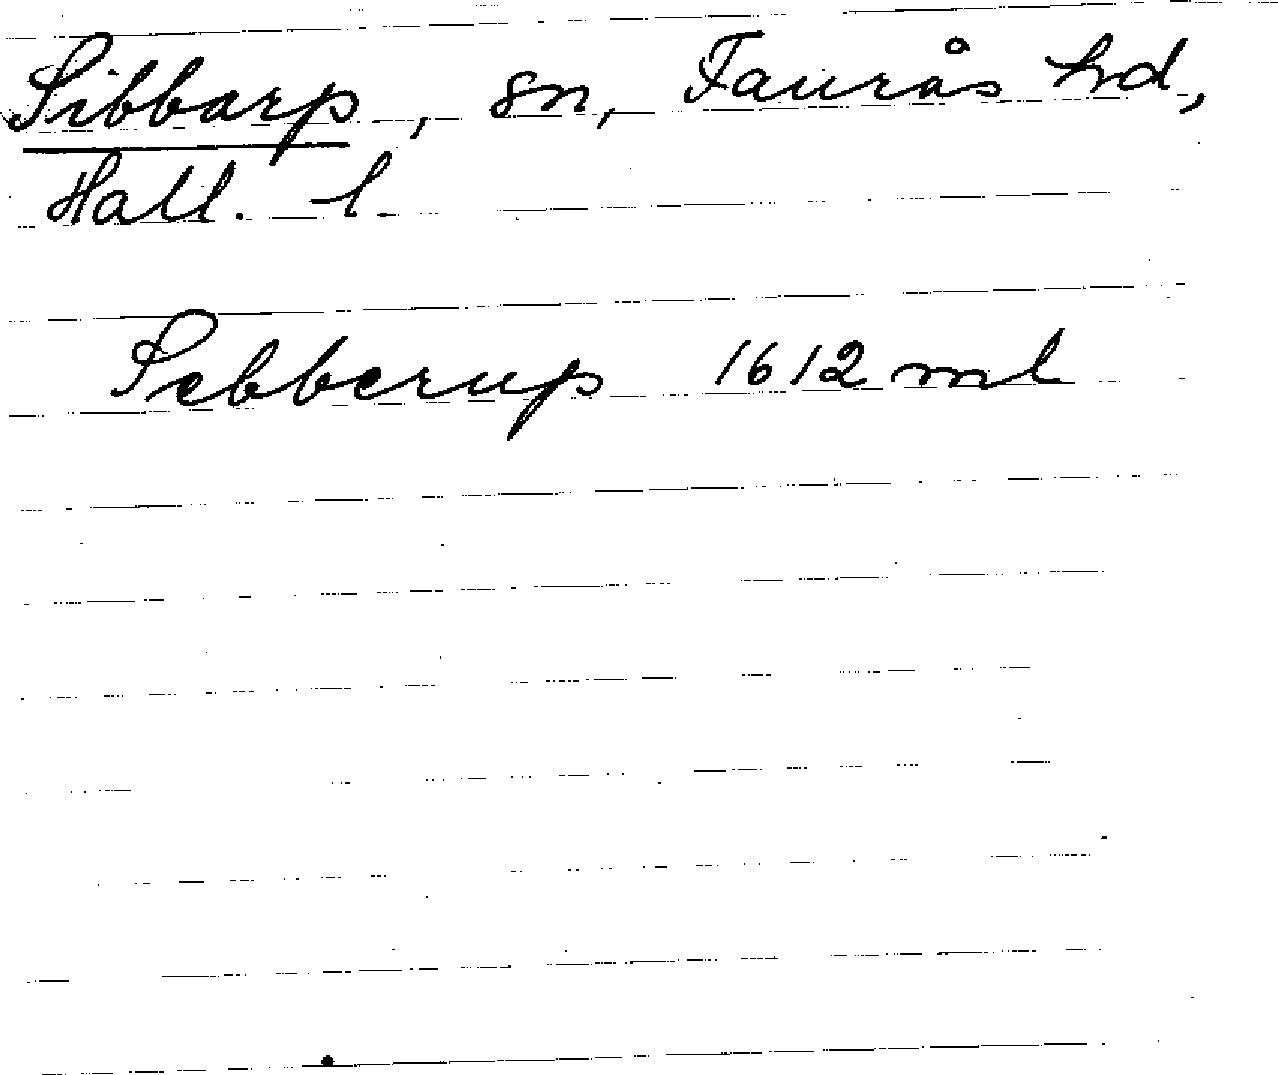 Sibbarp, sn, Faurås hd,
Hall. l.
Sebberup 1612 ml